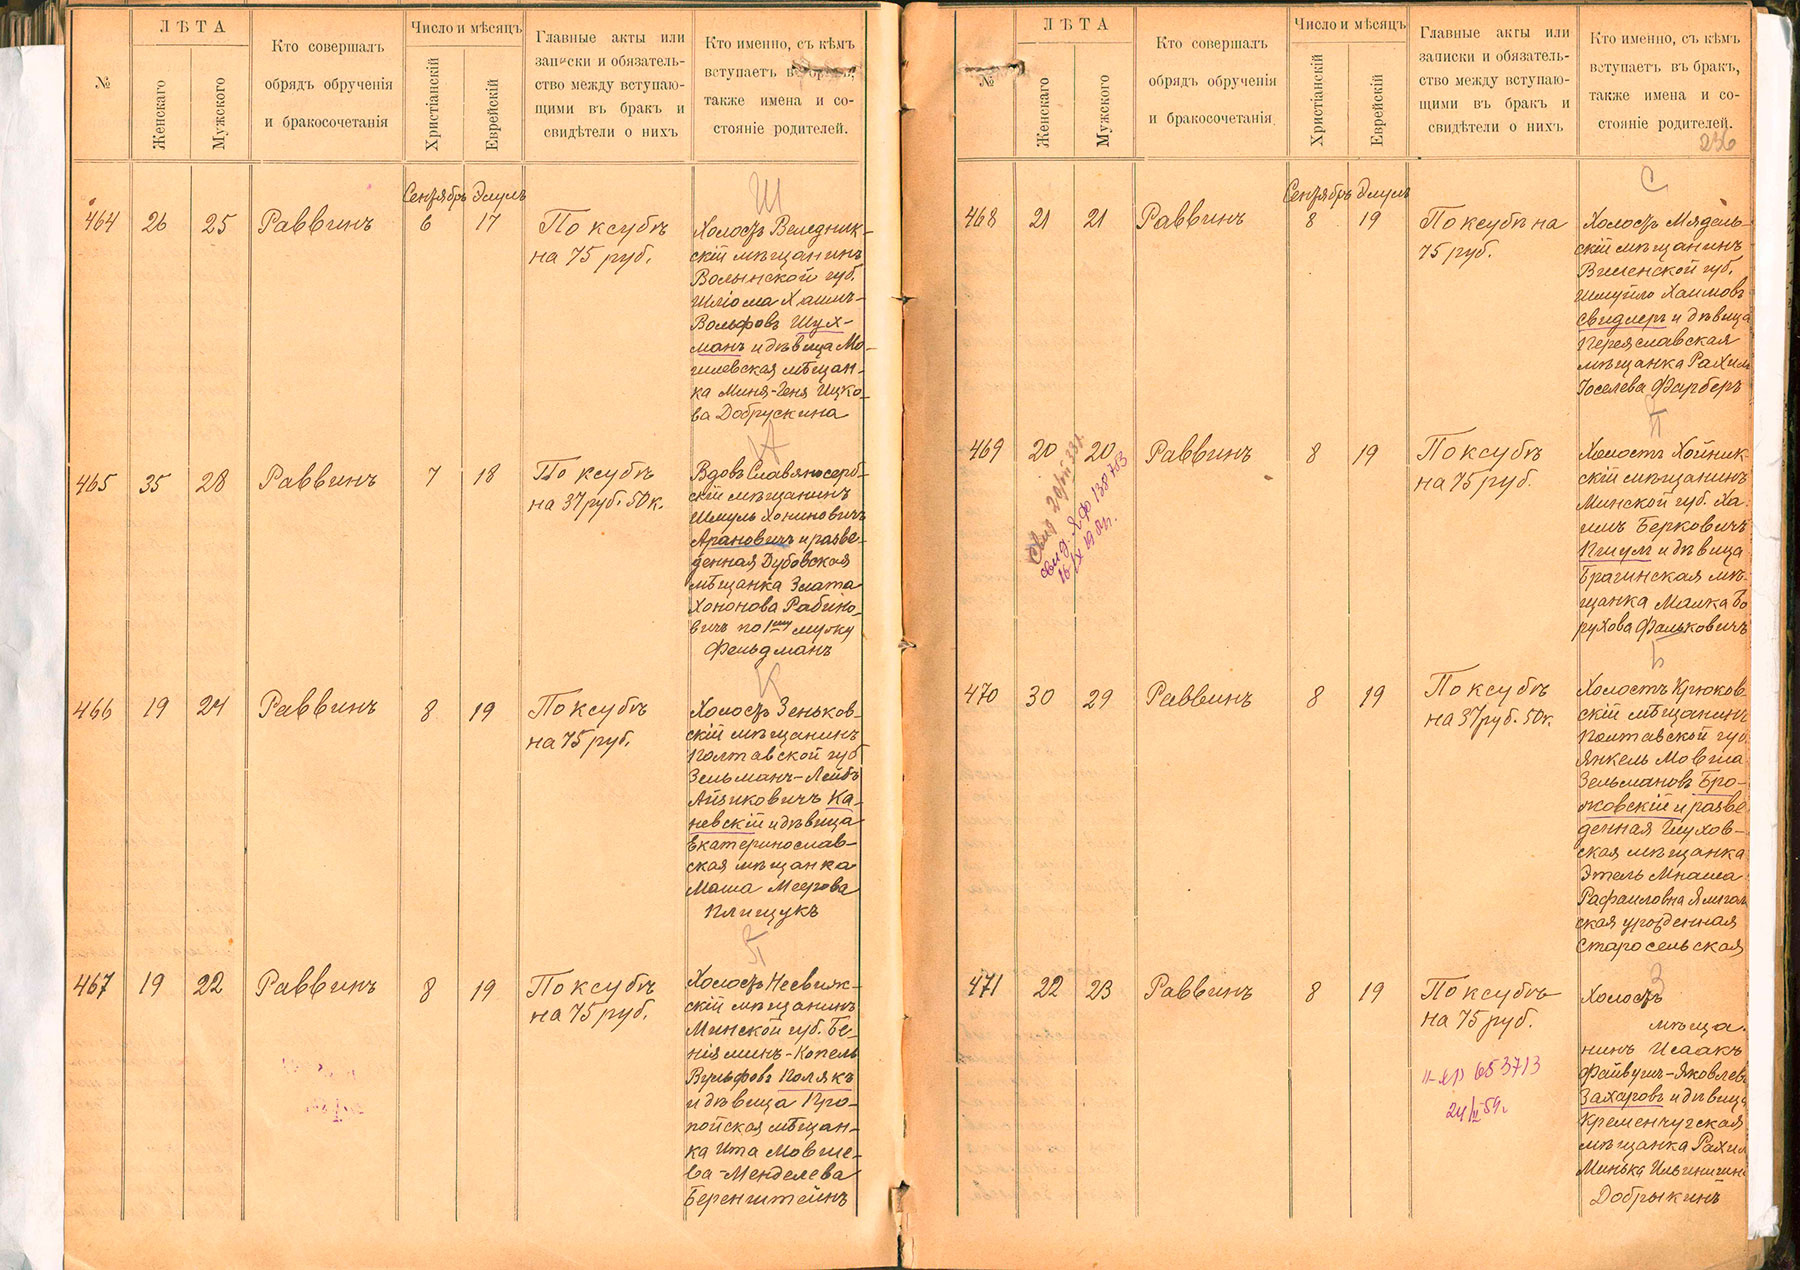 №
ЛѢТА
Женскаго
Мужского
Кто совершалъ
обрядъ обрученія
и бракосочетанія
Число и мѣсяцъ
Христіанскій
Еврейскій
Главные акты или
записки и обязатель-
ство между вступаю-
щими въ бракъ и
свидѣтели о нихъ
Кто именно, съ кѣмъ
вступаетъ въ бракъ,
также имена и со-
стояніе родителей.
Сентябрь Элулъ
Ш
464 26 25 Раввинъ 6 17
По ксубѣ
на 75 руб.
Холостъ Веледник-
скій мѣщанинъ
Волынской губ.
Шліома Хаимъ-
Вольфовъ Шух-
манъ и дѣвица Мо-
гилевская мѣщан-
ка Миня-Геня Ицко-
ва Добрускина
А
465 35 28 Раввинъ 7 18
По ксубѣ
на 37 руб. 50 к.
Вдовъ Славяносерб-
скій мѣщанинъ
Шмуль Хониновичъ
Арановичъ и разве-
денная Дубовская
мѣщанка Злата
Хононова Рабино-
вичъ по 1му мужу
Фельдманъ
К
466 19 24 Раввинъ 8 19
По ксубѣ
на 75 руб.
Холостъ Зеньков-
скій мѣщанинъ
Полтавской губ
Зельманъ-Лейбъ
Айзиковичъ Ка-
невскій и дѣвица
Екатеринослав-
ская мѣщанка
Маша Меерова
Плищукъ
П
467 19 22 Раввинъ 8 19
По ксубѣ
на 75 руб.
Холостъ Несвиж-
скій мѣщанинъ
Минской губ. Бе-
ніяминъ-Копель
Вульфовъ Полякъ
и дѣвица Про-
пойская мѣщан-
ка Ита Мовше-
ва-Менделева
Беренштейнъ
№
ЛѢТА
Женскаго
Мужского
Кто совершалъ
обрядъ обрученія
и бракосочетанія
Число и мѣсяцъ
Христіанскій
Еврейскій
Главные акты или
записки и обязатель-
ство между вступаю-
щими въ бракъ и
свидѣтели о нихъ
Кто именно, съ кѣмъ
вступаетъ въ бракъ,
также имена и со-
стояніе родителей.
236
Сентябрь Элулъ
С
468 21 21 Раввинъ 8 19
По ксубѣ на
75 руб.
Холостъ Мядель-
скій мѣщанинъ
Виленской губ.
Шмуйло Хаимовъ
Свидлеръ и дѣвица
Переяславская
мѣщанка Рахиль
Іоселева Фарберъ
П
469 20 20 Раввинъ 8 19
По ксубѣ
на 75 руб.
свид. ЯФ 138753
Холостъ Хойник-
скій мѣщанинъ
Минской губ. Ха-
имъ Берковичъ
и дѣвица
Брагинская мѣ-
щанка Малка Бо
рухова Фальковичъ
Б
470 30 29 Раввинъ 8 19
По ксубѣ
на 37 руб. 50 к.
Холостъ Крюков-
скій мѣщанинъ
Полтавской губ
Янкель Мовша
Зельмановъ Бро-
жовскій и разве
денная Глухов-
ская мѣщанка
Этель Мнаша
Рафаиловна Ямпол
ская урожденная
Старосельская
З
471 22 23 Раввинъ 8 19
По ксубѣ
на 75 руб.
653713
24/II 59 г.
Холостъ
мѣща-
нинъ Исаакъ
Файвушъ-Яковлевъ
Захаровъ и дѣвица
Кременчугская
мѣщанка Рахил
Минька
Добрыкинъ